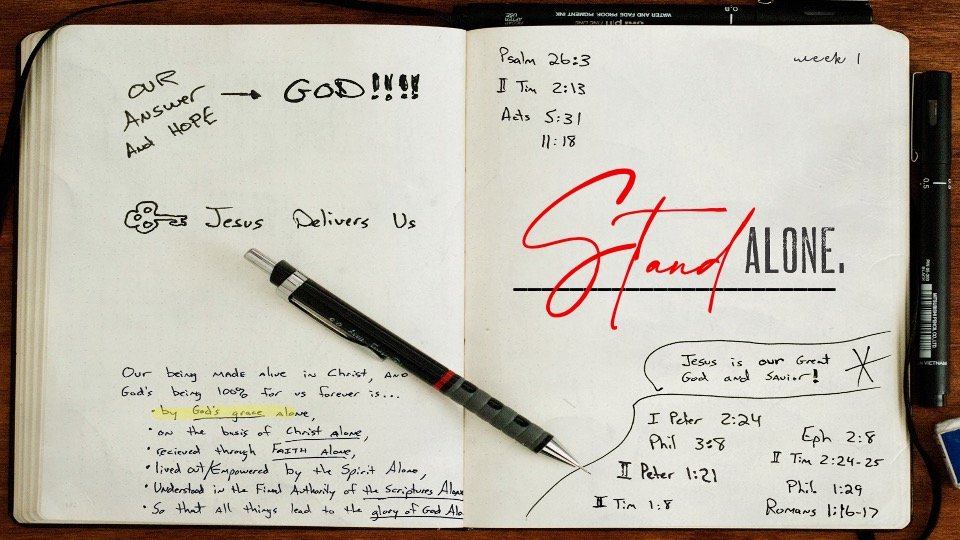 OUR
Answer
And HOPE
→ GOD!!!!
Jesus Delivers Us
Our being MADE alive in Christ, AND
God's being 100% for us forever is...
• by God's grace alone,
• on the basis of Christ Alone,
• recieved through FAITH Alone,
• lived out/Empowered by the Spirit Alone,
• Understood in the Final Authority of the Scriptures Alone
• So that all things lead to the glory of God Alo
WATER AND FADE PROOF, PIGMENT INK
Psalm 26:3
week 1
II Tim 2:13
Acts 5:31
11:18
Stand ALONE.
Jesus is our Great
God and Savior!
I Peter 2:24
Phil 3:8
II Peter 1:21
II Tim 1:8
Eph 2:8
II Tim 2:24-25
Phil 1:29
Romans 1:16-17
0.8
0.5